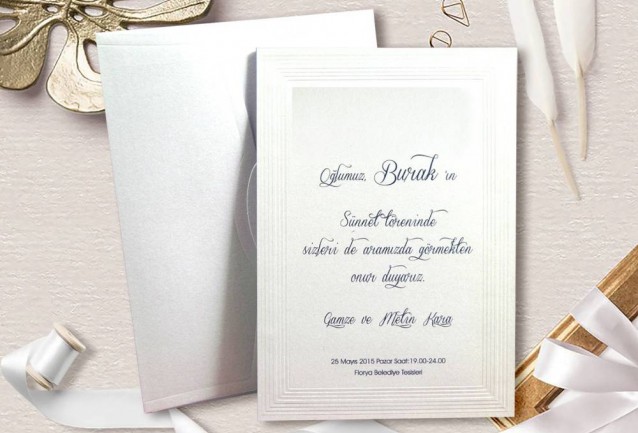 Oğlumuz, Burak 'ın
Sünnet töreninde
sizleri de aramızda görmekten
onur duyarız.
Gamze ve Metin Kara
25 Mayıs 2015 Pazar Saat:19.00-24.00
Florya Belediye Tesisleri